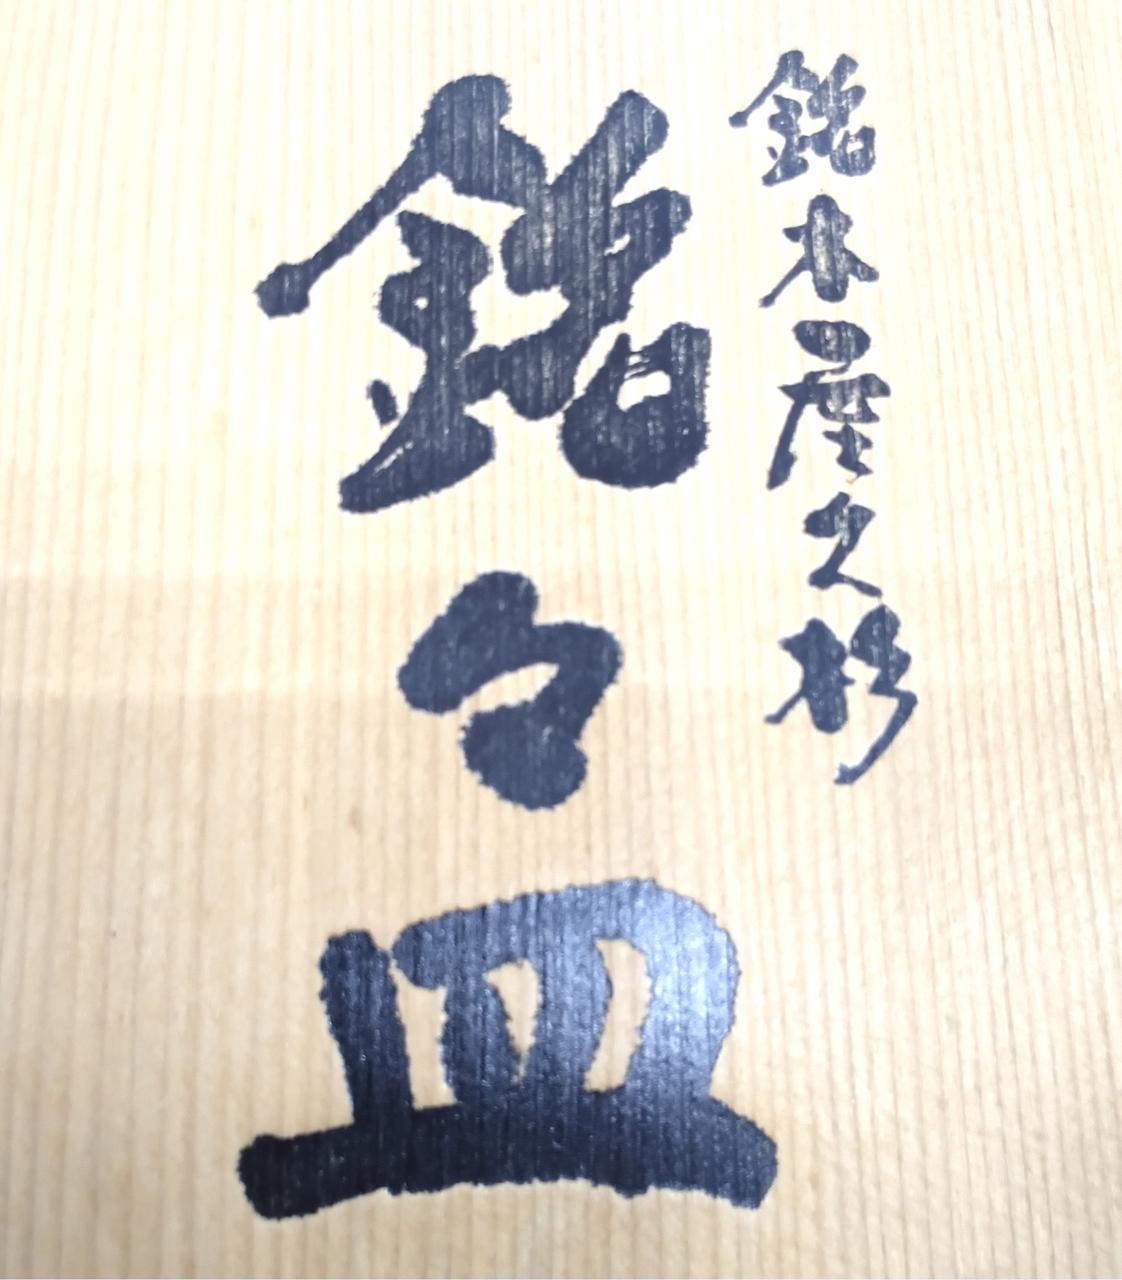 銘木屋久杉
銘々皿